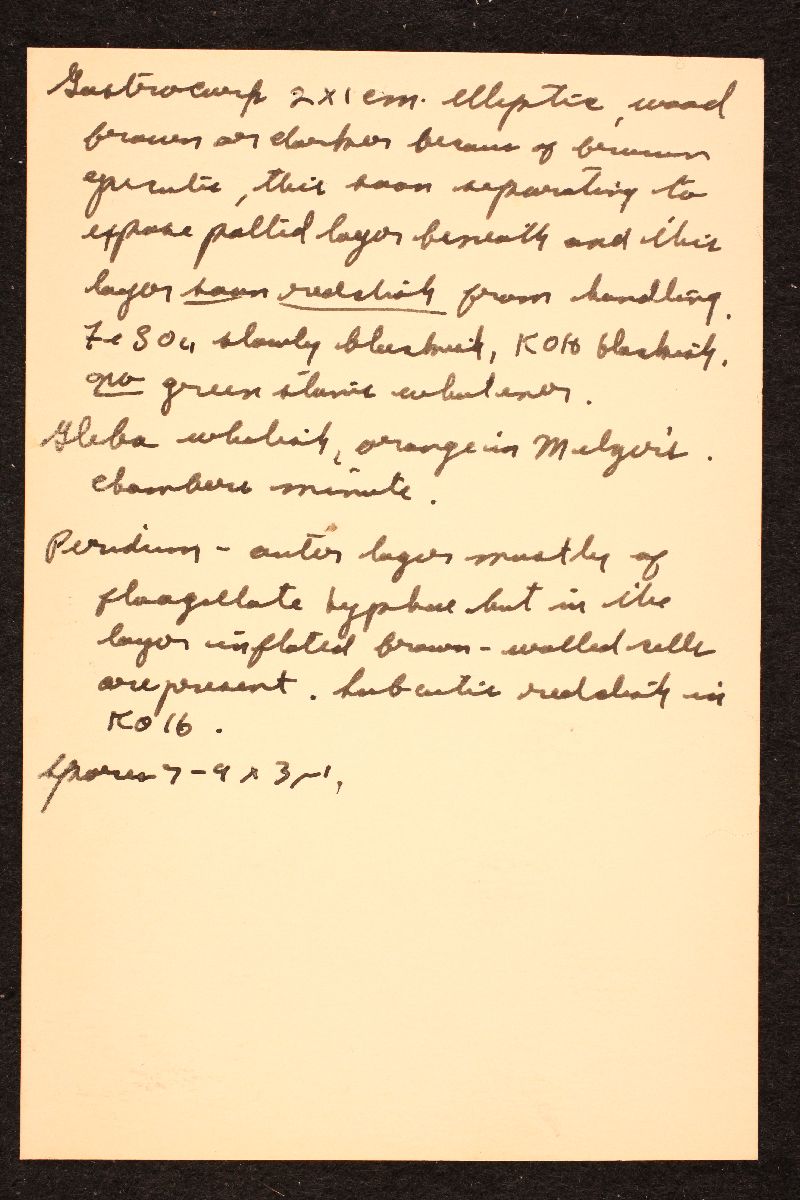 Gastrocarp 2x1 cm. elliptic, wood
brown or darker because of brown
epicutis, this soon separating to
expose pallid layer beneath and this
layer soon reddish from handling.
FeSO4 slowly blackish, KOH blackish.
no green stains whatever.
Gleba whitish, orange in Melzer's.
chambers minute.
Peridium - outer layer mostly of
flagellate hyphae but in the
layer inflated brown-walled cells
are present. Subcutis reddish in
KOH.
Spores 7-9 x 3 μ,